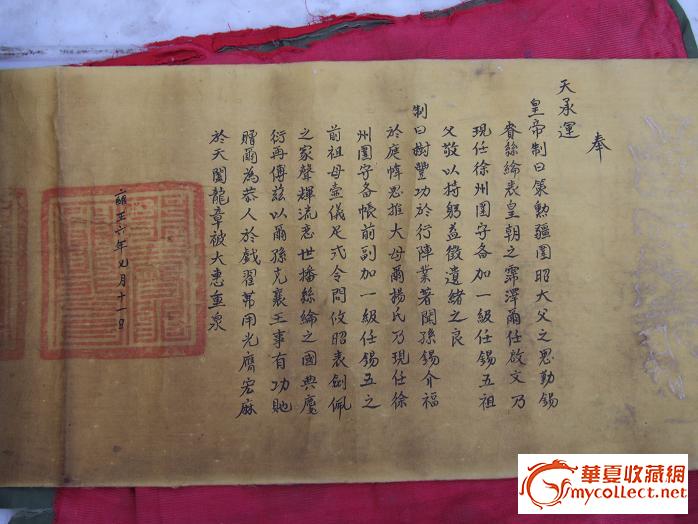 奉
天承運
皇帝制曰策勲疆圉昭大父之恩勤錫
賚絲綸表皇朝之霈澤爾任啟文乃
現任徐州圉守备加一級任錫五祖
父敬以持躬益徵遺緒之良
制曰樹豐功於行陣業著閑孫錫介福
於庭幃恩推大母爾揚氏乃現任徐
州圉守各帳前副加一級任錫五之
前祖母壼儀足式令問攸昭表劍佩
之家聲輝流奕世播絲綸之國典慶
衍再傳兹以爾孫克襄王事有功貤
贈爾為恭人於戲翟茀用光膺宏庥
於天闕龍章被大惠重泉
雍正六年七月十一日
華夏收藏網
mycollect.net